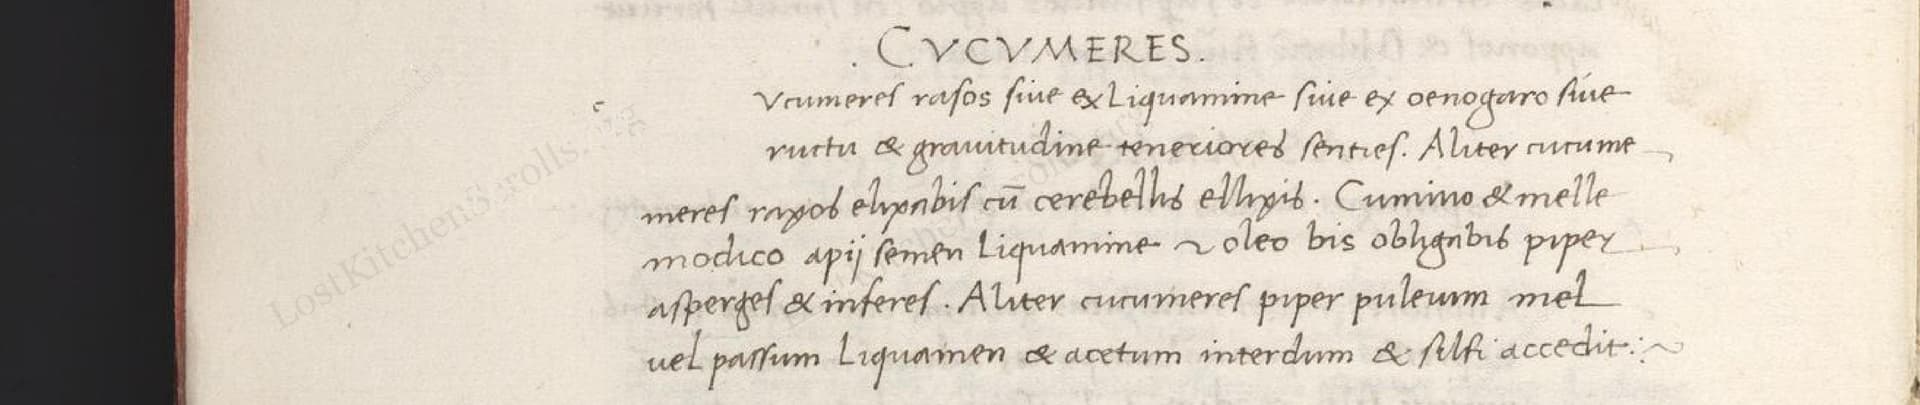 . CVCVMERES.
c
vcumeres rasos siue ex Liquamine siue ex oenogaro siue
ructu & grauitudine teneriores senties. Aliter cucume
meres raxos elixabis cū cerebellis ellixis. Cumino & melle
modico apij semen Liquamine ~ oleo bis obligabis piper
asperges & inferes. Aliter cucumeres piper puleium mel
uel passum Liquamen & acetum interdum & silfi accedit:~
LostKitchenScrolls.org